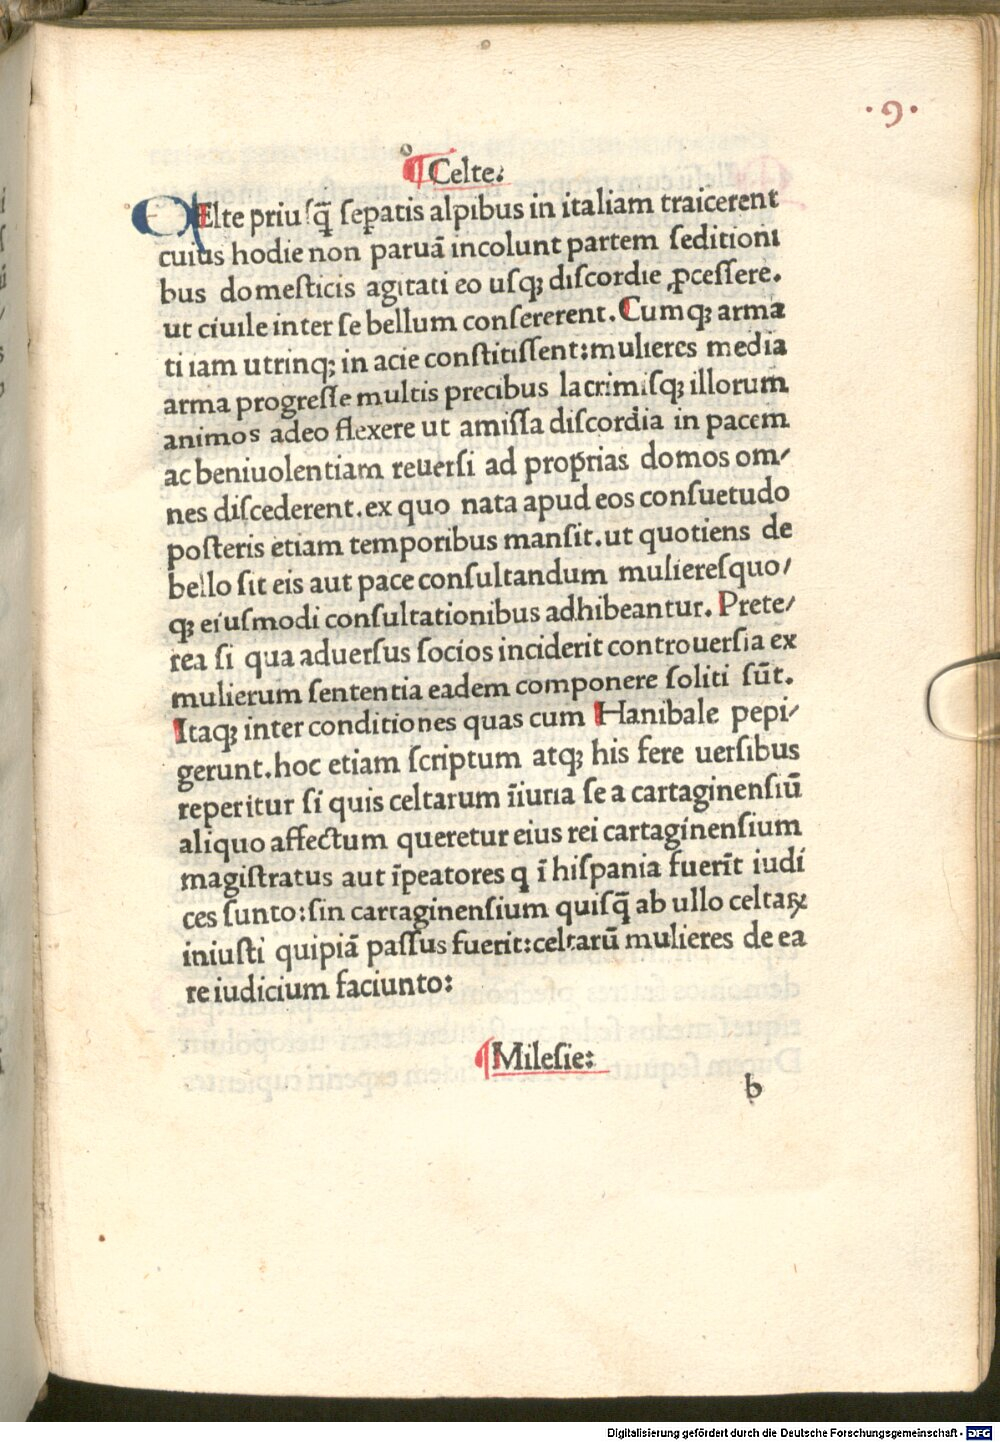 ·9·
¶Celte:
CElte priuſq̄ ſepatis alpibus in italiam traicerent
cuius hodie non paruā incolunt partem ſeditioni
bus domeſticis agitati eo uſqꝫ diſcordie ꝓceſſere.
ut ciuile inter ſe bellum conſererent. Cumqꝫ arma
ti iam utrinqꝫ in acie conſtitiſſent:mulieres media
arma progreſſe multis precibus lacrimiſqꝫ illorum
animos adeo flexere ut amiſſa diſcordia in pacem
ac beniuolentiam reuerſi ad proprias domos om/
nes diſcederent.ex quo nata apud eos conſuetudo
poſteris etiam temporibus manſit.ut quotiens de
bello ſit eis aut pace conſultandum mulieresquo/
qꝫ eiuſmodi conſultationibus adhibeantur. Prete/
rea ſi qua aduerſus ſocios inciderit controuerſia ex
mulierum ſententia eadem componere ſoliti ſūt.
Itaqꝫ inter conditiones quas cum Hanibale pepi/
gerunt.hoc etiam ſcriptum atqꝫ his fere uerſibus
reperitur ſi quis celtarum īiuria ſe a cartaginenſiū
aliquo affectum queretur eius rei cartaginenſium
magiſtratus aut īpeatores q ī hiſpania fuerīt iudi
ces ſunto:ſin cartaginenſium quiſq̄ ab ullo celtaꝝ
iniuſti quipiā paſſus fuerit:celtarū mulieres de ea
re iudicium faciunto:
¶Mileſie:
b
Digitalisierung gefördert durch die Deutsche Forschungsgemeinschaft - DFG